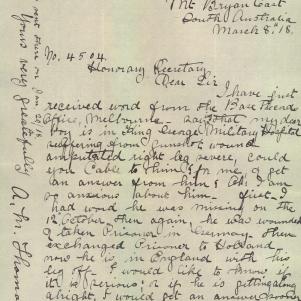 Mt Bryan East
South Australia
March 8th 18.
No. 4504.
Honorary Secretary
Dear Sir
I have just
received word from the Base
Office, Melbourne. that my dear
Boy is in King George Military Hospital
suffering from Gunshot wound
amputated right leg severe, could
you Cable to him & for me, & get
an answer from him & Oh! I am
so anxious about him. first I
had word he was missing on the
12 October, then again, he was wounded
& taken Prisoner in Germany then
exchanged Prisoner to Holland,
now he is in England with his
leg off. I would like to know if
it is serious; or if he is getting along
alright, I would get an answer
went there on Jan 20/18
Yours very gratefully
A. M.